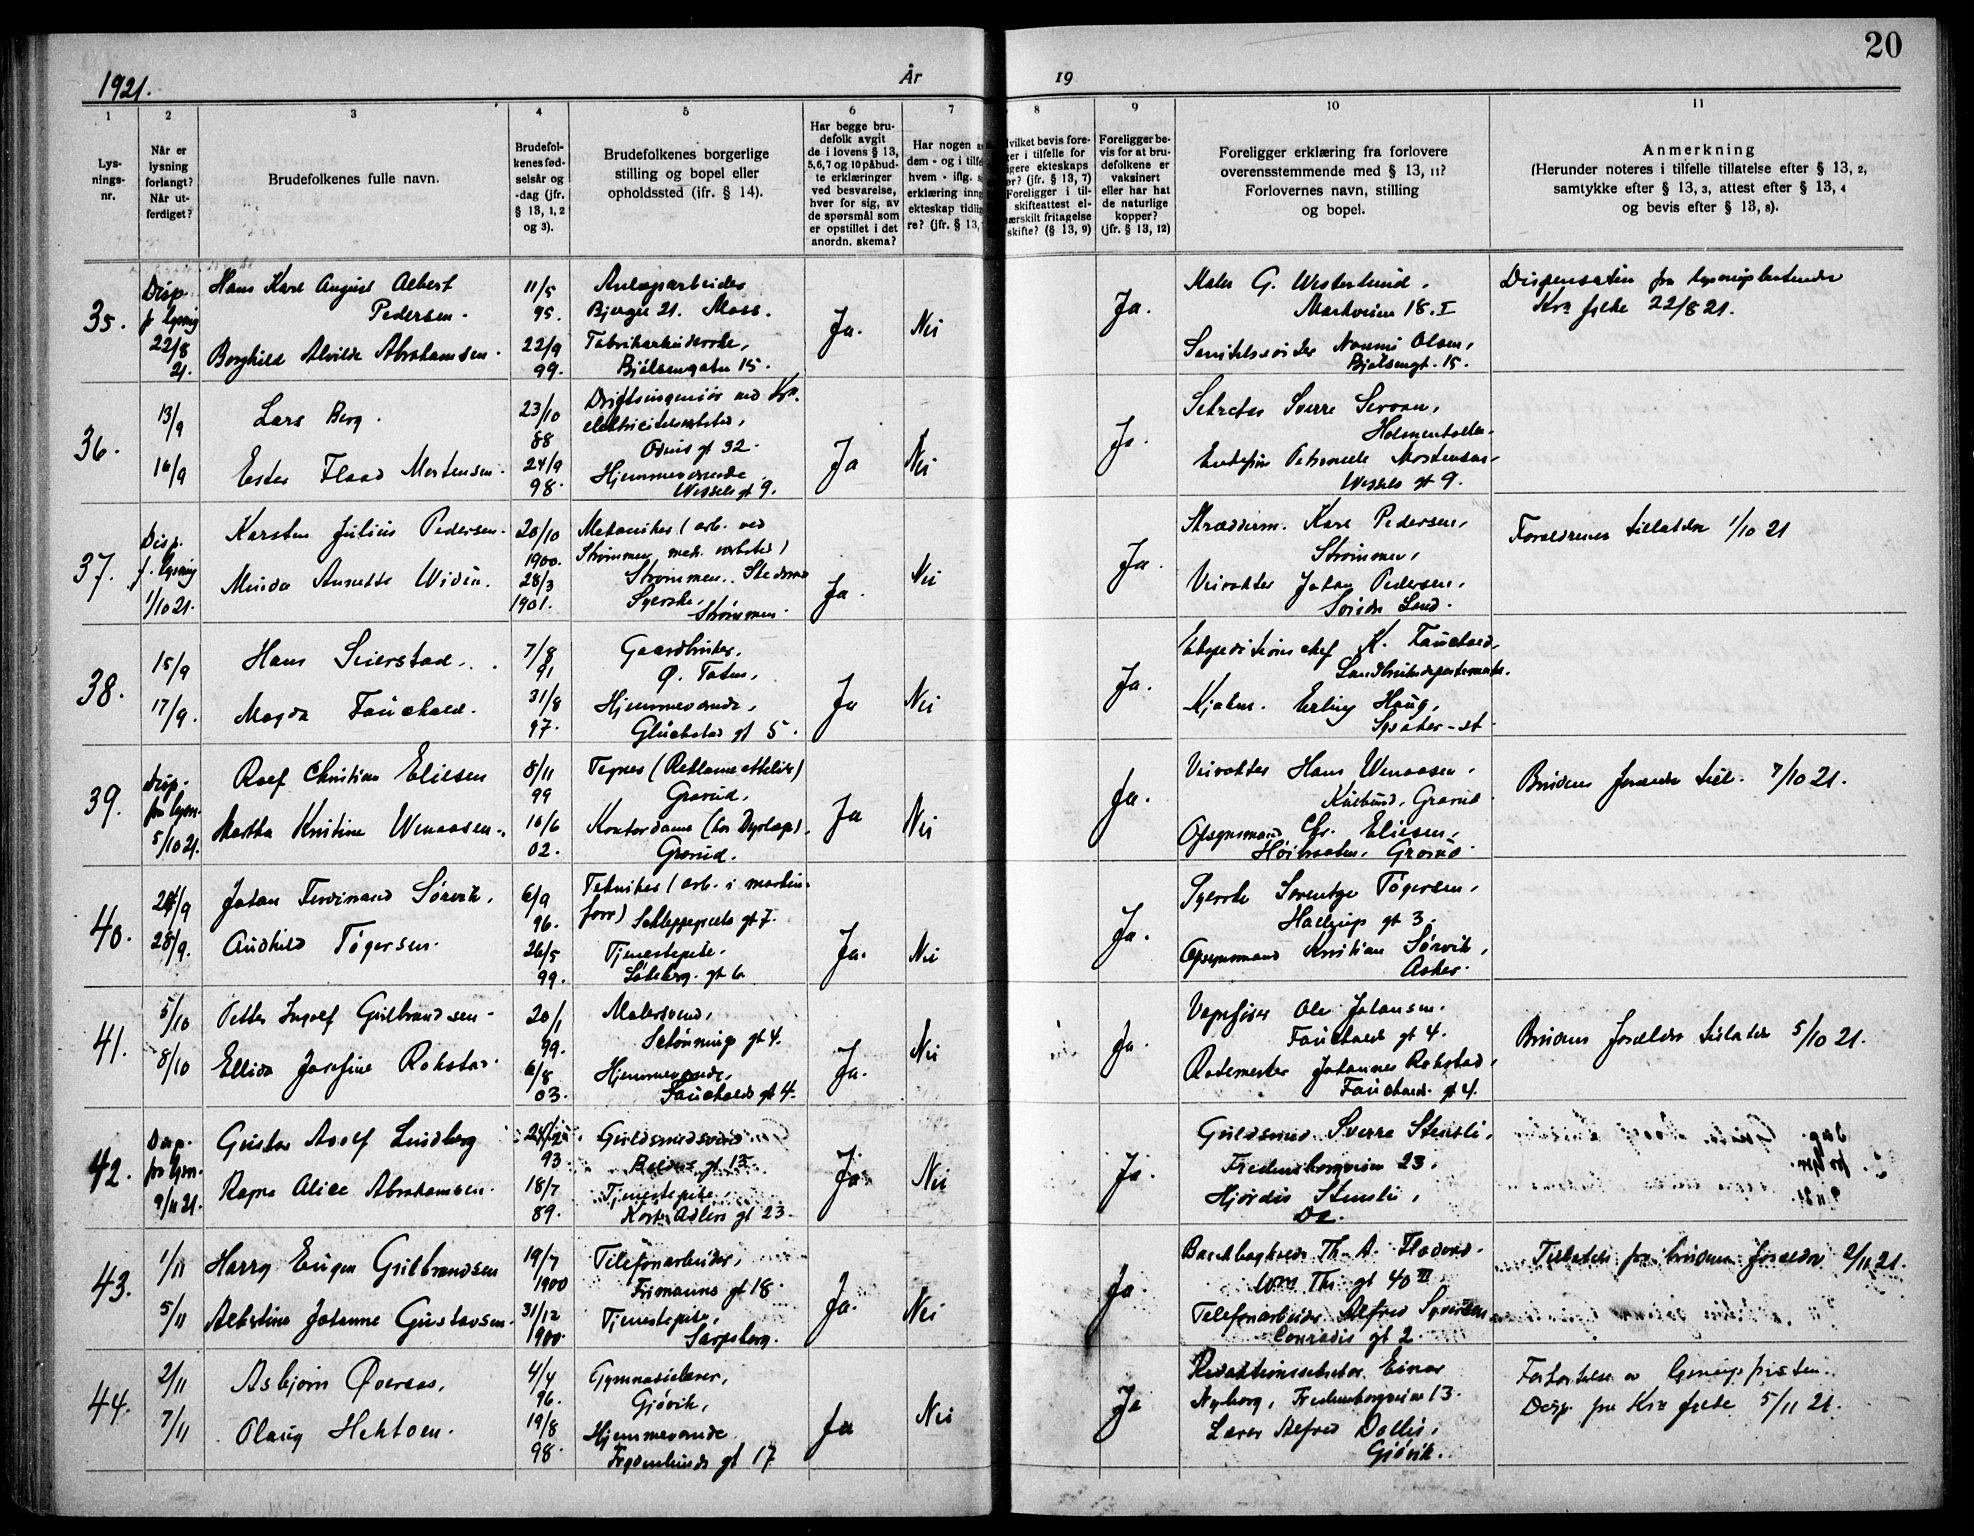 20
1921.
År
19
1
2
3
4
5
6
7
8
9
10
11
Lys-
nings-
nr.
Når er
lysning
forlangt?
Når ut-
ferdiget?
Brudefolkenes fulle navn.
Brudefol-
kenes fød-
selsår og
-dag (jfr.
§ 13, 1, 2
og 3).
Brudefolkenes borgerlige
stilling og bopel eller
opholdssted (jfr. § 14).
Har begge bru-
defolk avgit
de i lovens § 13,
5, 6, 7 og 10 påbud-
te erklæringer
ved besvarelse,
hver for sig, av
de spørsmål som
er opstillet i det
anordn. skema?
Har nogen
dem - og i tilfe
hvem - iflg.
erklæring inng
ekteskap tidli
re? (jfr. § 13,
vilket bevis fore-
ger i tilfelle for
igere ekteskaps
ør? (jfr. § 13, 7)
Foreligger i til-
skifteattest el-
ærskilt fritagelse
skifte? (§ 13, 9)
Foreligger be-
vis for at bru-
defolkene er
vaksinert
eller har hat
de naturlige
kopper?
(jfr. § 13, 12)
Foreligger erklæring fra forlovere
overensstemmende med § 13, 11?
Forlovernes navn, stilling
og bopel.
Anmerkning
(Herunder noteres i tilfelle tillatelse efter § 13, 2,
samtykke efter § 13, 3, attest efter § 13, 4
og bevis efter § 13, 8).
35.
Disp.
fr lysnig
22/8
21.
Hans Karl August Albert
Pedersen.
Borghild Alvilde Abrahamsen.
11/5
95.
22/9
99.
Anlægsarbeider
Bjerget 21. Moss.
Fabrikarbeiderske,
Bjølsengaten 15.
Ja.
Nei
Ja.
Maler G. Westerlund,
Markveien 18. I
Nanni Olsen,
Bjølsengt. 15.
Dispensation fra
Kra 22/8 21.
36.
13/9
16/9
Lars Berg.
Ester Flaad Mortensen.
23/10
88
24/9
98.
Driftsingeniør ved Kra.
Odins gt 32.
Hjemmeværende
Wessels gt 9.
Ja
Nei
Ja.
Sverre
Holmenkollen.
Petronelle Mortensen,
Wessels gt 9.
37.
Disp.
f. lysnig
1/10 21.
Karsten Julius Pedersen.
Minda Annette Widén.
20/10
1900.
28/3
1901.
Mekaniker (arb. ved
Strømmen mek. verksted)
Strømmen.
Syerske,
Strømmen.
Ja.
Nei
Ja.
Skræderm. Karl Pedersen,
Strømmen,
Veivokter Johan Pedersen,
Søndre Land.
Forældrenes tillatelse 1/10 21
38.
15/9
17/9.
Hans Seierstad.
Magda Fauchald.
7/8
91
31/8
97.
Gaardbruker,
Ø. Toten,
Hjemmeværende,
Glückstad gt 5.
Ja
Nei
Ja.
Ekspeditionschef K. Fauchald,
Landbruksdepartementet.
Kjøbm. Erling Haug,
39.
Disp.
fra lysn.
5/10 21.
Rolf Christian Eliesen
Martha Kristine Wenaasen.
8/11
99
10/6
02.
Tegner (Reklameattelier)
Grorud.
Kontordame
Grorud.
Ja
Nei
Ja.
Veivokter Hans Wenaasen,
Grorud
Opsynsmand Chr. Eliesen,
Høibraaten, Grorud.
Brudens forældre till. 7/10 21.
40.
24/9
28/9.
Johan Ferdinand Sørvik,
Audhild Tøgersen.
6/9
96.
26/5
99.
Tekniker
Schleppegrells gt 7.
Tjenestepike.
gt 6
Ja.
Nei
Ja.
Syerske Tøgersen,
gt 3.
Opsynsmand Kristian Sørvik,
Asker.
41.
5/10
8/10
Petter Ingolf Gulbrandsen.
Ellida Josefine Rokstad.
20/1
99.
6/8
03.
Malersvend,
Schønnings gt 4.
Hjemmeværende,
Fauchalds gt 4.
Ja.
Nei
Ja.
Ole Johansen.
Fauchalds gt 4.
Rodemester Johannes Rokstad,
Fauchalds gt 4.
Brudens forældre tillatelse 5/10 21.
42.
Disp.
fra lysn.
9/11 21.
Gustav Adolf Lindberg
Ragna Alice Abrahamsen.
93
18/7
89.
Guldsmedsvend
gt 13
Tjenestepike,
Kort Adlers gt 23.
Ja
Nei
Ja.
Guldsmed Sverre Stensli,
Fredensborgveien 23.
Hjørdis Stensli,
Do.
43.
1/11
5/11
Harry Eugen Gulbrandsen
Albertine Johanne Gustavsen.
19/7
1900
31/12
1900.
Telefonarbeider,
Frimanns gt 18
Tjenestepike,
Sarpsborg.
Ja.
Nei
Ja.
Th. A.
gt 40 III
Telefonarbeider Alfred Syversen
Conradis gt 2.
Tillatelse fra brudens forældre 2/11 21.
44.
2/11
7/11
Asbjørn Øveraas,
Olaug Hektoen.
4/4
96.
19/8
98.
Gymnasielærer,
Gjøvik,
Hjemmeværende
Frydenlunds gt 17
Ja
Nei
Ja
Redaktionssekretær Einar
Nyborg, Fredensborgveien 13.
Lærer Alfred Dallis,
Gjøvik.
Forkortelse av lysningsfristen.
Disp fra Kra 5/11 21.